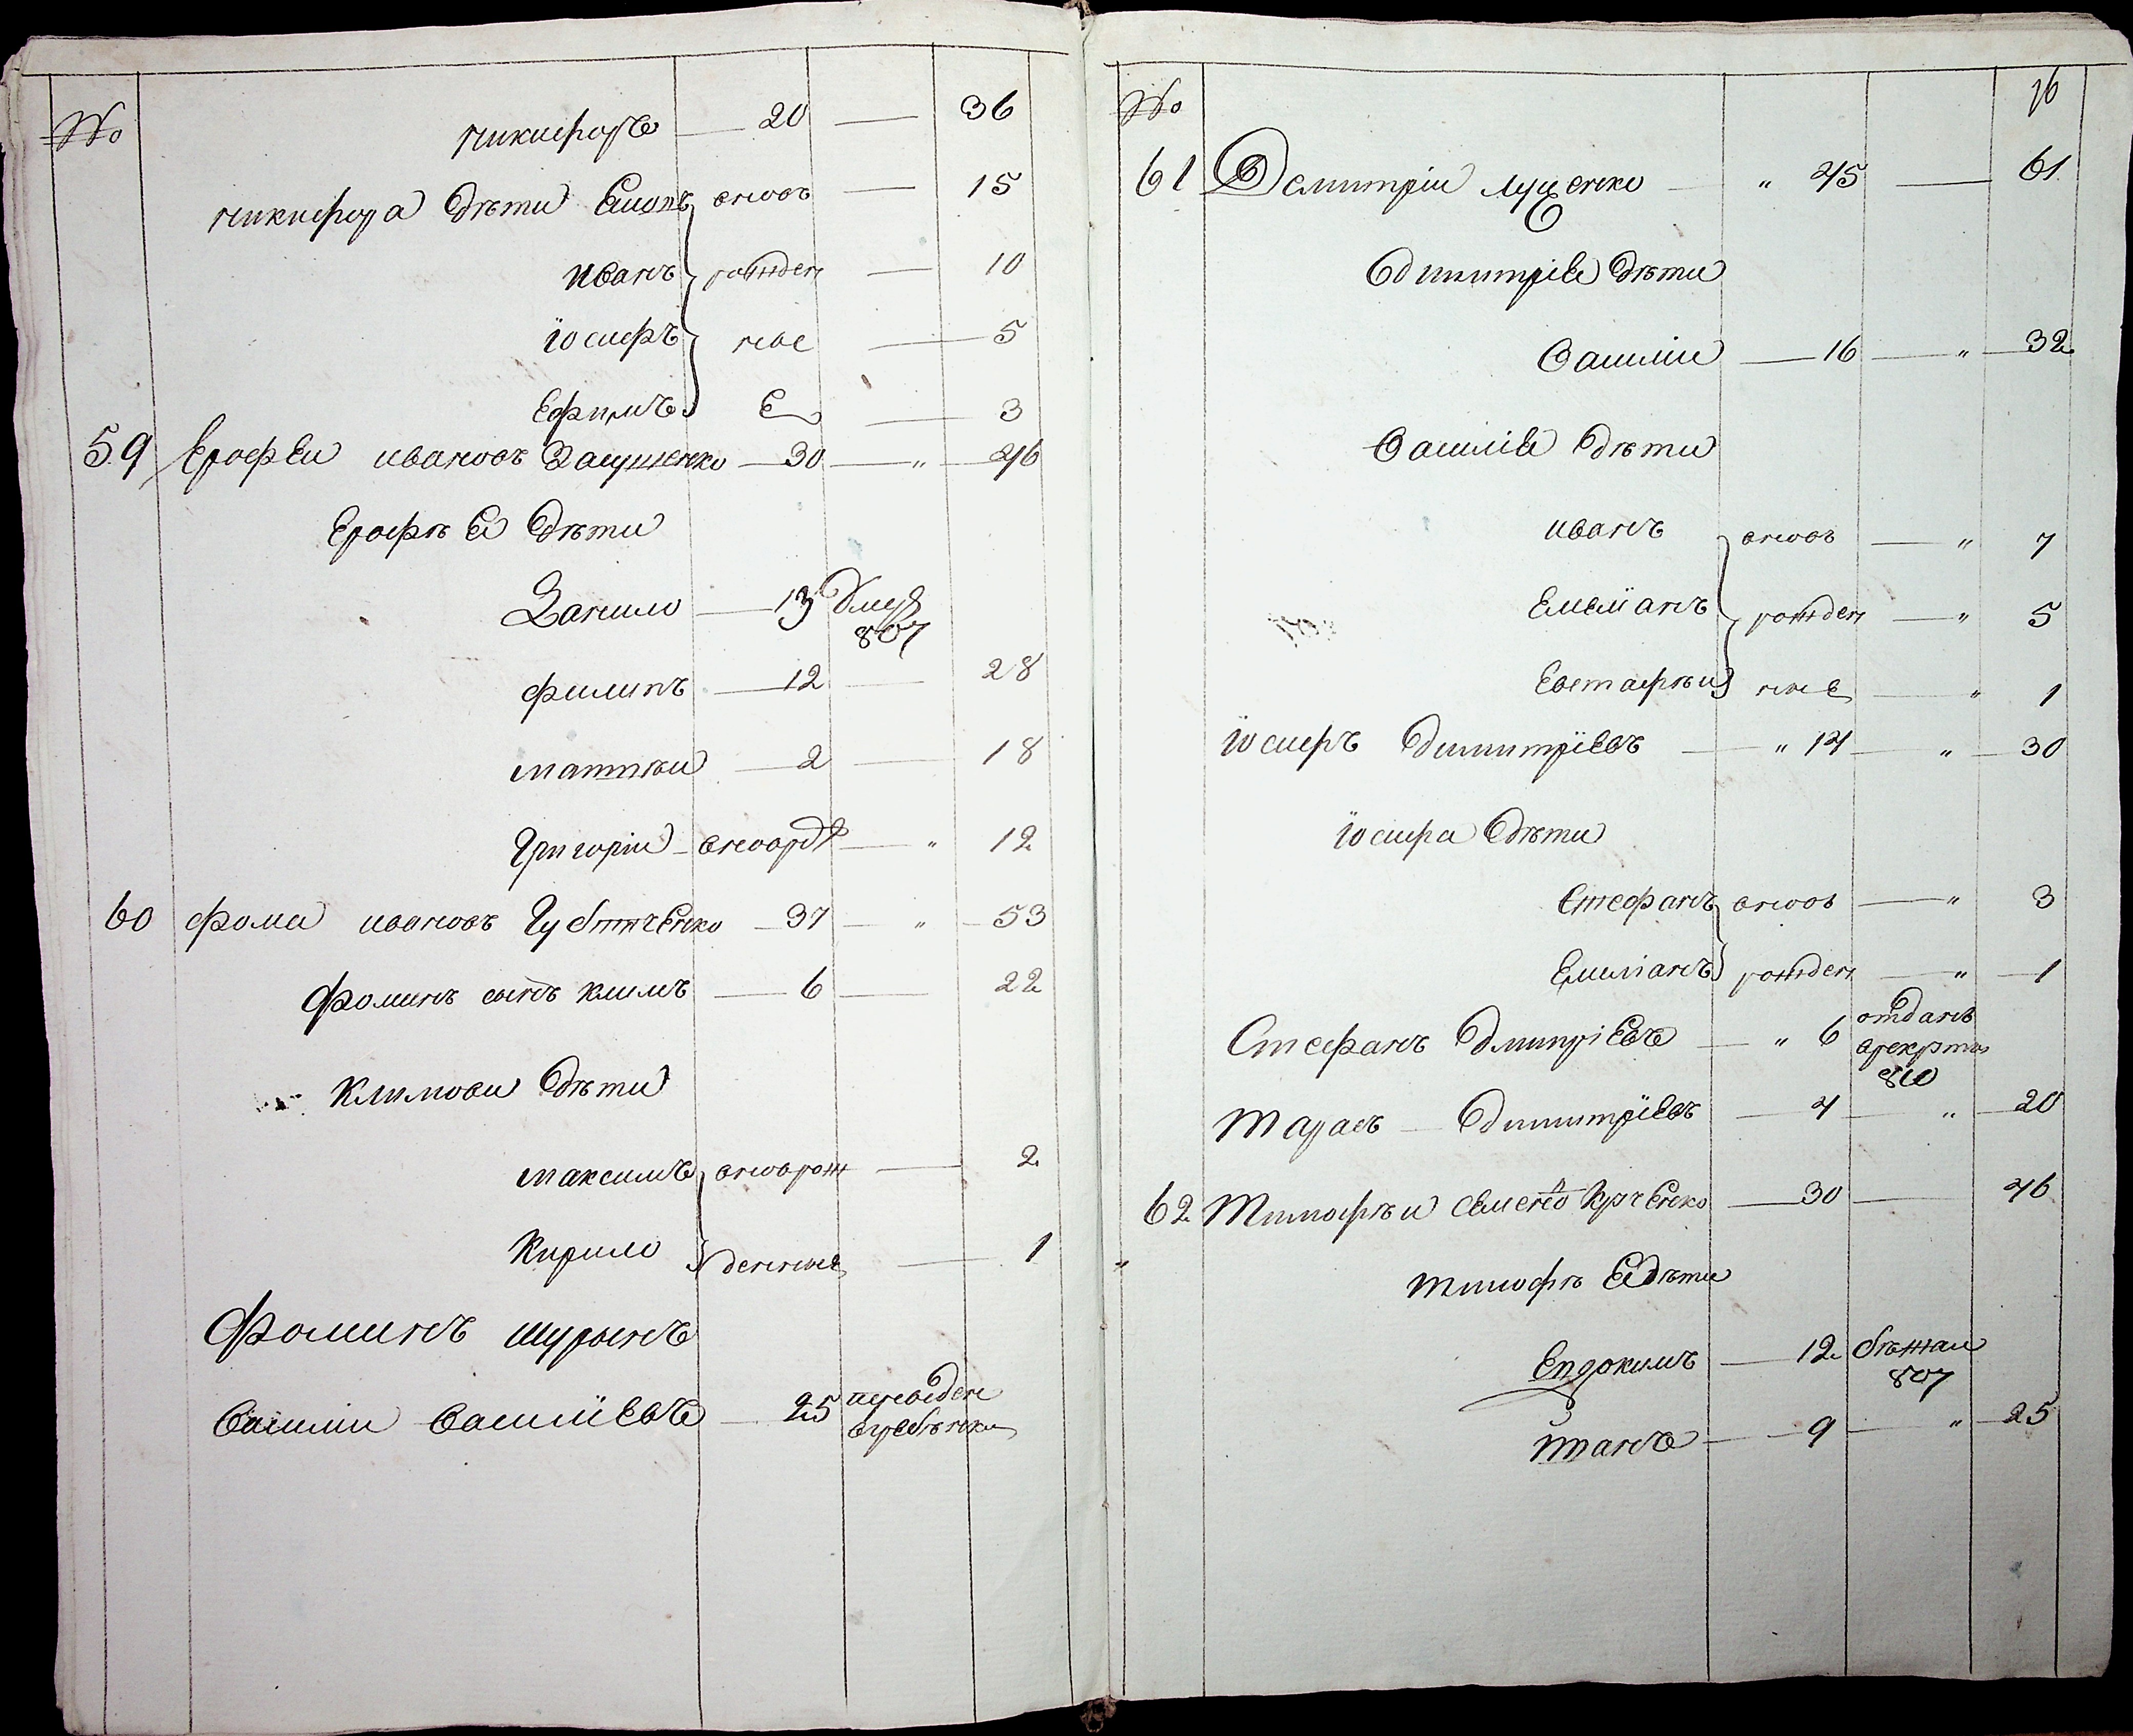 №
никифоръ — 20 — 36
никифора дѣти Емелъ вновъ — 15
иванъ рожден — 10
іосифъ ные — 5
Ефимъ Е — 3
59 Ерофеи ивановъ — 30 — „ — 46
Ерофѣева дѣти
Данило — 13 умер 807
филипъ — 12 — 28
матвѣи — 2 — 18
Григоріи — вноврож — „ 12
60 фома ивановъ — 37 — „ — 53
фоминъ сынъ климъ — 6 — 22
Климови дѣти
максимъ вноврож — 2
Кирило денные — 1
Фоминъ шуринъ
Василии Василіевъ — 25 переведен
№ 76
61 Демитріи луценко — „ 45 — 61
дмитріевы дѣти
Василии — 16 — „ — 32
Василіевы дѣти
иванъ вновъ — „ 7
Емеліанъ рожден — „ 5
Евстафѣи ные — „ 1
іосифъ димитріевъ — „ 14 — „ — 30
іосифа дѣти
Стефанъ вновъ — „ 3
Емиліанъ рожден — „ — 1
Стефанъ дмитріевъ — „ 6 отданъ
врекруты
810
Тарасъ — димитріевъ — 4 — „ — 20
62 Тимофѣи семенов — 30 — 46
тимофѣевы дѣти
Евдокимъ — 12 бѣжал
807
— 9 — „ — 25